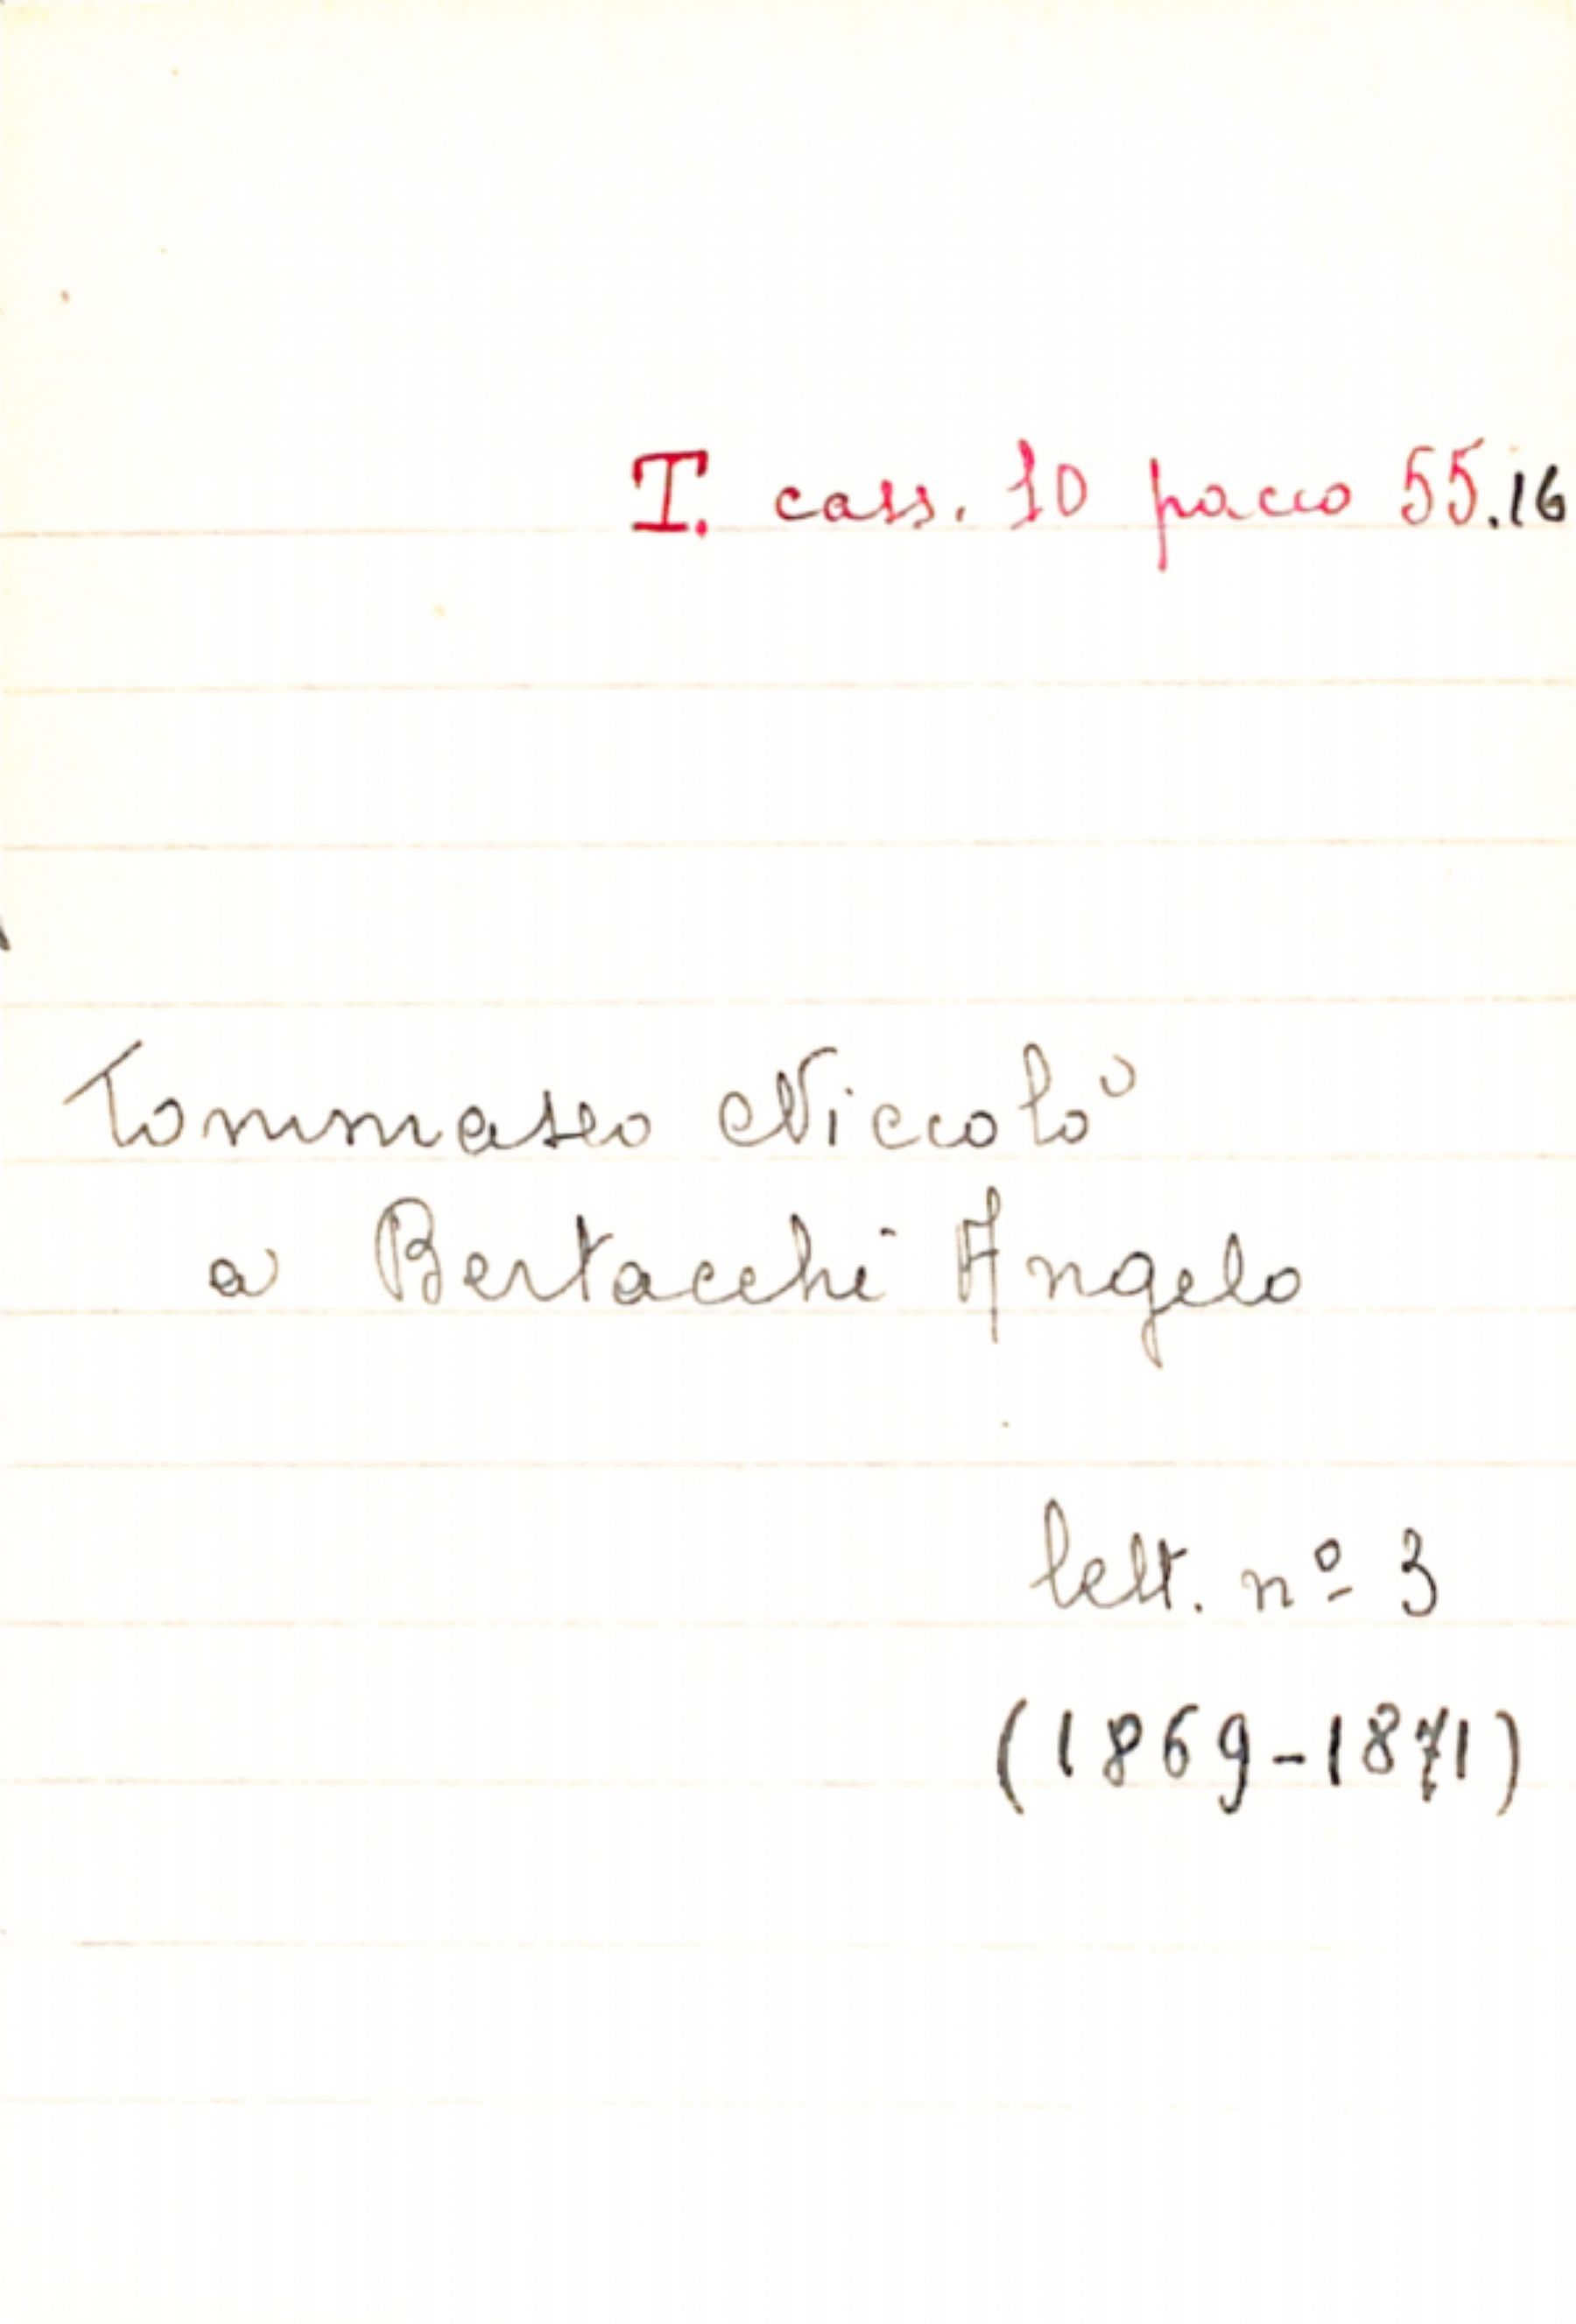 T. cass. 10 pacco 55.16
Tommaseo Niccolò
a Bertacchi Angelo
lett. nº 3
(1869-1871)